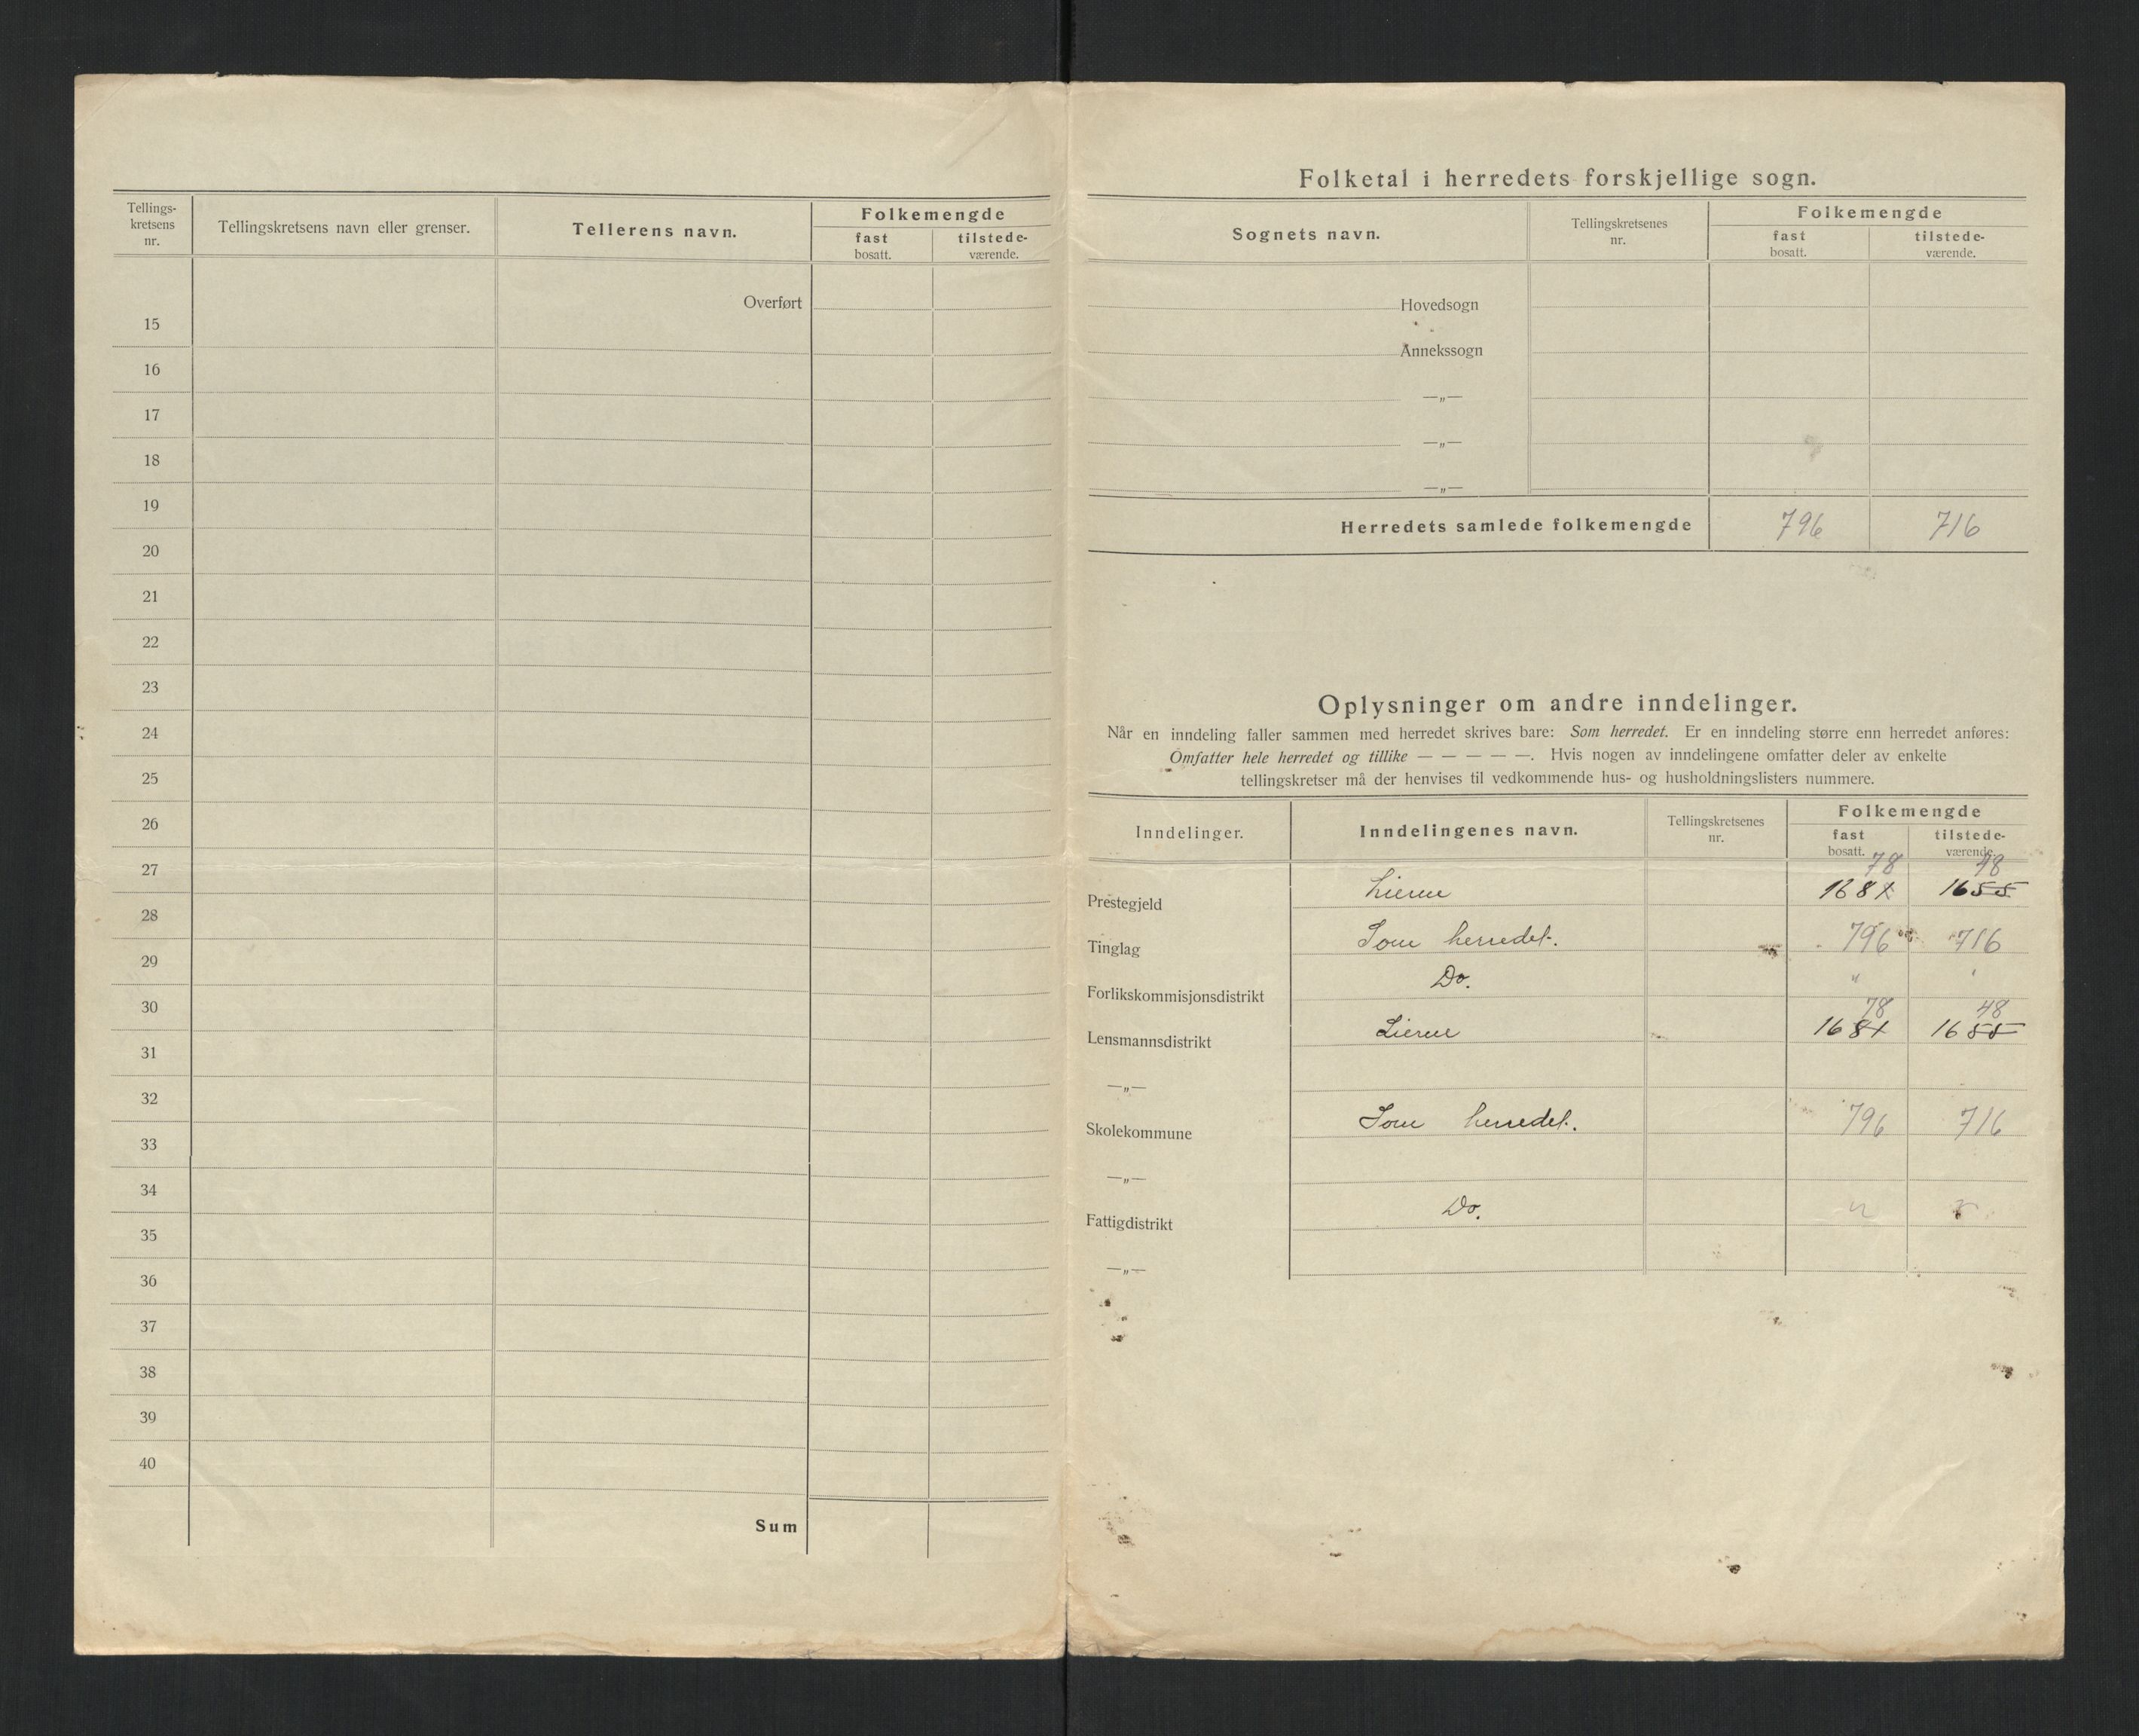 Tellings-
kretsens
nr.
Tellingskretsens navn eller grenser.
Tellerens navn.
Folkemengde
fast
bosatt.
tilstede-
værende.
Overført
15
16
17
18
19
20
21
22
23
24
25
26
27
28
29
30
31
32
33
34
35
36
37
38
39
40
Sum
Folketal i herredets forskjellige sogn.
Sognets navn.
Tellingskretsenes
nr.
Folkemengde
fast
bosatt.
tilstede-
værende.
Hovedsogn
Annekssogn
—„—
—„—
—„—
Herredets samlede folkemengde 796 716
Oplysninger om andre inndelinger.
Når en inndeling faller sammen med herredet skrives bare: Som herredet. Er en inndeling større enn herredet anføres:
Omfatter hele herredet og tillike — — — — —. Hvis nogen av inndelingene omfatter deler av enkelte
tellingskretser må der henvises til vedkommende hus- og husholdningslisters nummere.
Inndelinger.
Inndelingenes navn.
Tellingskretsenes
nr.
Folkemengde
fast
bosatt.
tilstede-
værende.
78 48
Prestegjeld Lierne 1655
Tinglag Som herredet. 796 716
Forlikskommisjonsdistrikt Do. "
78 48
Lensmannsdistrikt Lierne 1655
—„—
Skolekommune Som herredet. 796 716
—„—
Fattigdistrikt Do. "
—„—